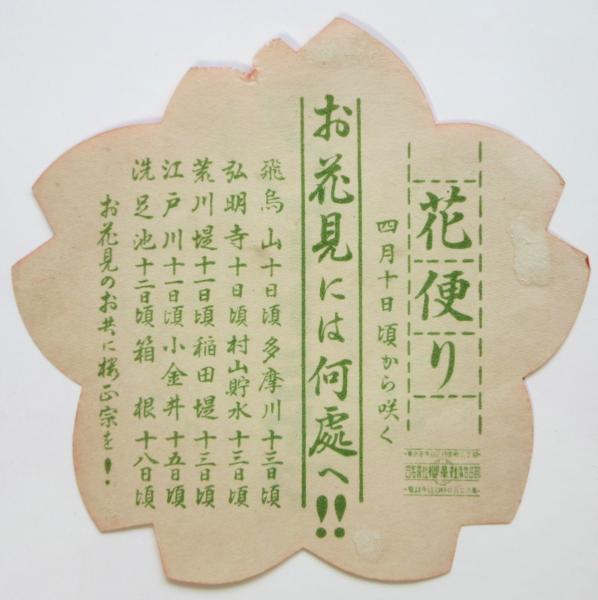 花便り
四月十日頃から咲く
お花見には何處へ!!
飛鳥山十日頃 多摩川十三日頃
弘明寺十日頃 村山貯水十三日頃
荒川堤十一日頃 稲田堤十三日頃
江戸川十一日頃 小金井十五日頃
洗足池十二日頃 箱根十八日頃
お花見のお共に櫻正宗を!